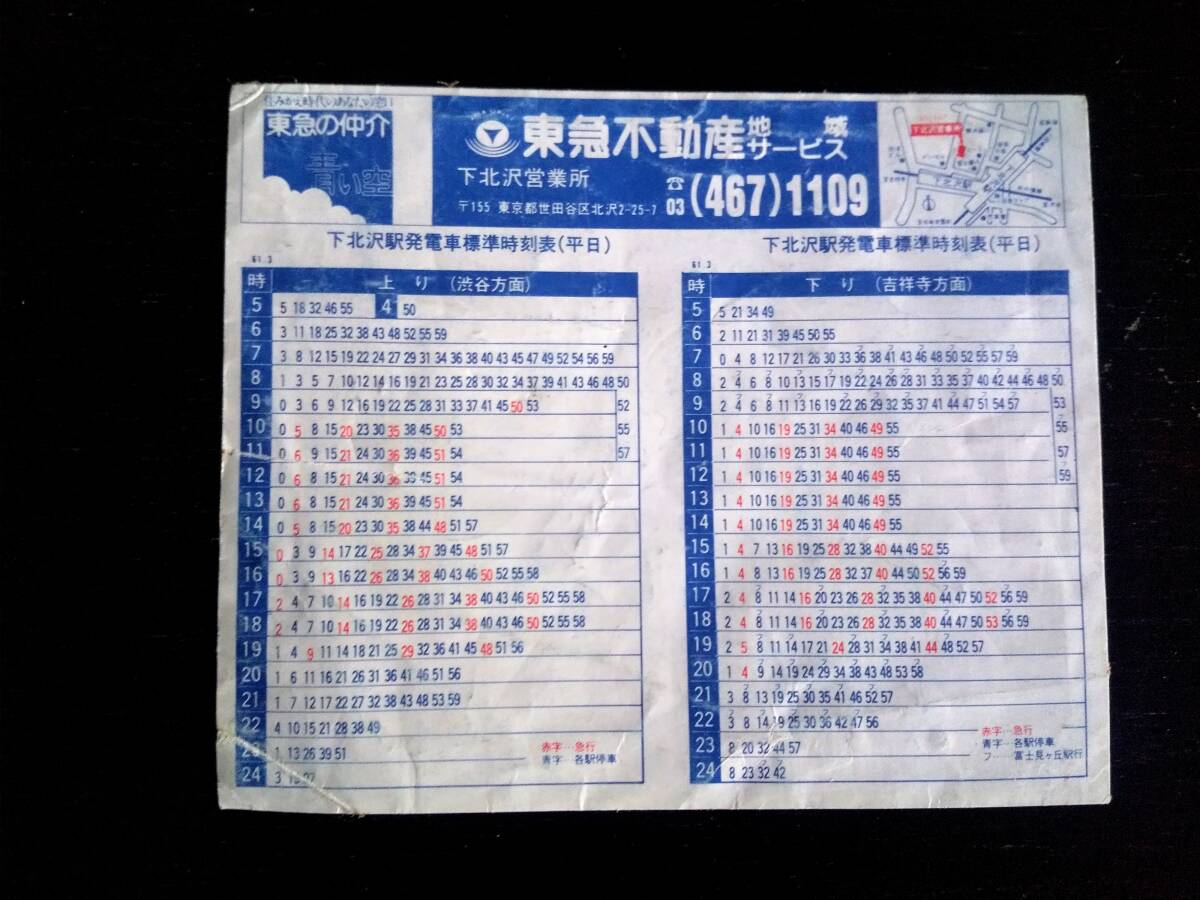 住みかえ時代のあなたの窓!
東急の仲介
青い空
東急不動産地域サービス
下北沢営業所
☎03(467)1109
〒155 東京都世田谷区北沢2-25-7
下北沢営業所
下北沢駅
下北沢駅発電車標準時刻表(平日)
61.3
時 上り (渋谷方面)
5 5 18 32 46 55 4 50
6 3 11 18 25 32 38 43 48 52 55 59
7 3 8 12 15 19 22 24 27 29 31 34 36 38 40 43 45 47 49 52 54 56 59
8 1 3 5 7 10 12 14 16 19 21 23 25 28 30 32 34 37 39 41 43 46 48 50
9 0 3 6 9 12 16 19 22 25 28 31 33 37 41 45 50 53 52
10 0 5 8 15 20 23 30 35 38 45 50 53 55
11 0 6 9 15 21 24 30 36 39 45 51 54 57
12 0 6 8 15 21 24 30 36 39 45 51 54
13 0 6 8 15 21 24 30 36 39 45 51 54
14 0 5 8 15 20 23 30 35 38 44 48 51 57
15 0 3 9 14 17 22 25 28 34 37 39 45 48 51 57
16 0 3 9 13 16 22 26 28 34 38 40 43 46 50 52 55 58
17 2 4 7 10 14 16 19 22 26 28 31 34 38 40 43 46 50 52 55 58
18 2 4 7 10 14 16 19 22 26 28 31 34 38 40 43 46 50 52 55 58
19 1 4 9 11 14 18 21 25 29 32 36 41 45 48 51 56
20 1 6 11 16 21 26 31 36 41 46 51 56
21 1 7 12 17 22 27 32 38 43 48 53 59
22 4 10 15 21 28 38 49
23 1 13 26 39 51
24 3
赤字…急行
青字…各駅停車
下北沢駅発電車標準時刻表(平日)
61.3
時 下り (吉祥寺方面)
5 5 21 34 49
6 2 11 21 31 39 45 50 55
7 0 4 8 12 17 21 26 30 33 36 38 41 43 46 48 50 52 55 57 59
8 2 4 6 8 10 13 15 17 19 22 24 26 28 31 33 35 37 40 42 44 46 48 50
9 2 4 6 8 11 13 16 19 22 26 29 32 35 37 41 44 47 51 54 57 53
10 1 4 10 16 19 25 31 34 40 46 49 55 55
11 1 4 10 16 19 25 31 34 40 46 49 55 57
12 1 4 10 16 19 25 31 34 40 46 49 55 59
13 1 4 10 16 19 25 31 34 40 46 49 55
14 1 4 10 16 19 25 31 34 40 46 49 55
15 1 4 7 13 16 19 25 28 32 38 40 44 49 52 55
16 1 4 8 13 16 19 25 28 32 37 40 44 50 52 56 59
17 2 4 8 11 14 16 20 23 26 28 32 35 38 40 44 47 50 52 56 59
18 2 4 8 11 14 16 20 23 26 28 32 35 38 40 44 47 50 53 56 59
19 2 5 8 11 14 17 21 24 28 31 34 38 41 44 48 52 57
20 1 4 9 14 19 24 29 34 38 43 48 53 58
21 3 8 13 19 25 30 35 41 46 52 57
22 3 8 14 19 25 30 36 42 47 56
23 8 20 32 44 57
24 8 23 32 42
赤字…急行
青字…各駅停車
フ…富士見ヶ丘駅行